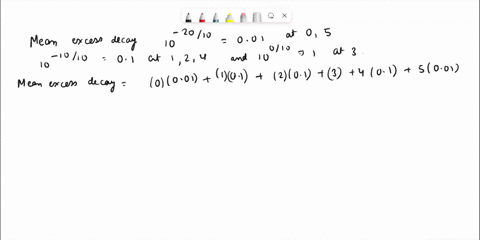 Mean excess decay 10^{-20/10} = 0.01 at 0, 5
10^{-10/10} = 0.1 at 1, 2, 4 and 10^{0/10} = 1 at 3.
Mean excess decay = (0)(0.01) + (1)(0.1) + (2)(0.1) + (3) + 4 (0.1) + 5 (0.01)